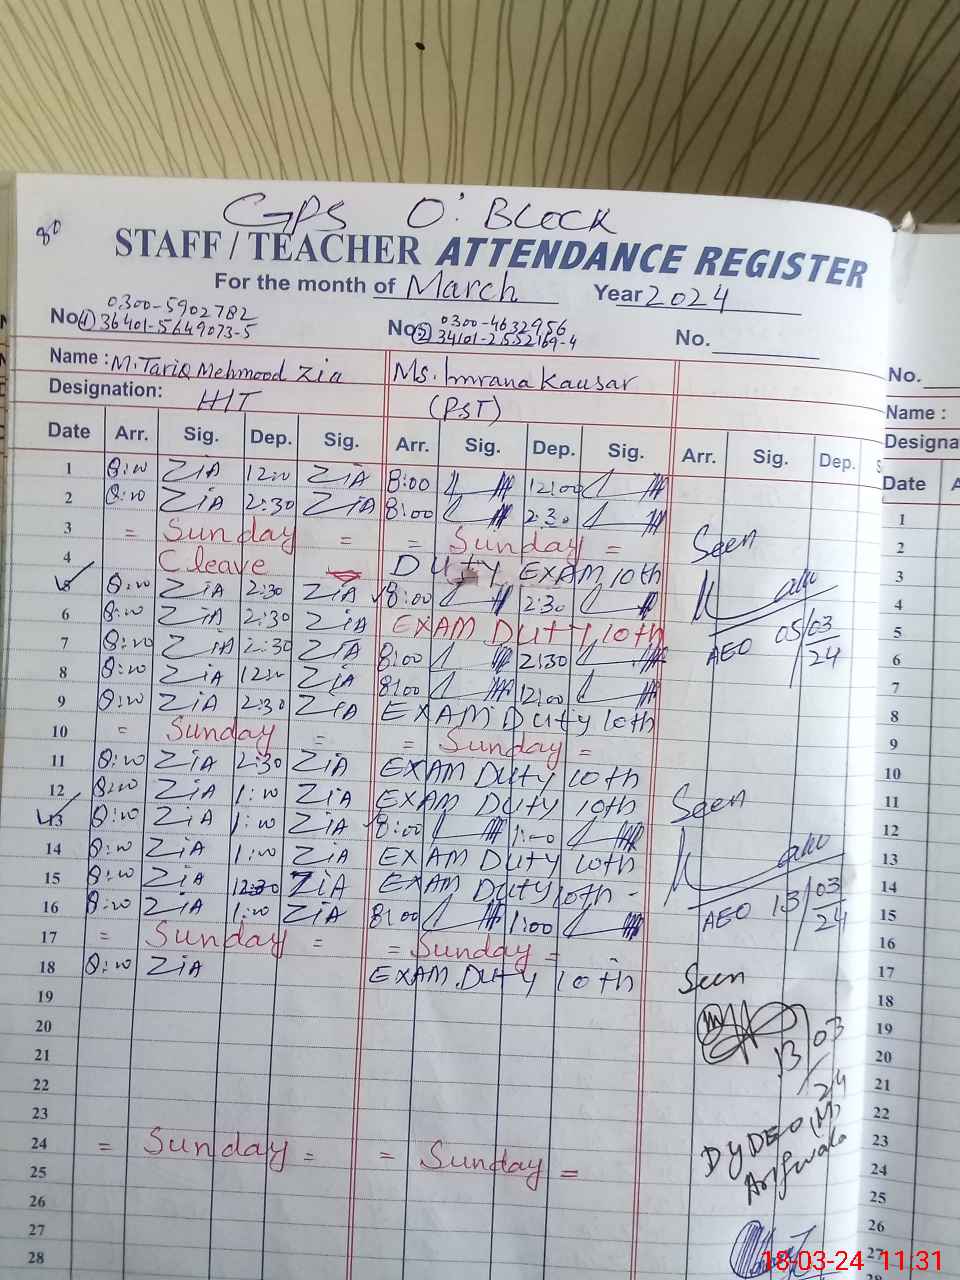 80
GPS O' BLOCK
STAFF / TEACHER ATTENDANCE REGISTER
For the month of March Year 2024
No. (1) 0300-5902782 No. (2) 0300-4632956 No.
36401-5649073-5 34101-2552169-4
Name : M. Tariq Mehmood Zia Ms. Imrana Kausar
Designation: (PST)
Date Arr. Sig. Dep. Sig. Arr. Sig. Dep. Sig. Arr. Sig. Dep.
1 8:00 ZiA 12:00 ZiA 8:00 12:00
2 8:00 ZiA 2:30 ZiA 8:00 2:30
3 = Sunday = = Sunday =
4 C leave DUTY EXAM 10th
5 8:00 ZiA 2:30 ZiA 8:00 2:30
6 8:00 ZiA 2:30 ZiA EXAM DUTY 10th
7 8:00 ZiA 2:30 ZiA 8:00 2:30
8 8:00 ZiA 12:00 ZiA 8:00 12:00
9 8:00 ZiA 2:30 ZiA EXAM Duty 10th
10 = Sunday = = Sunday =
11 8:00 ZiA 2:30 ZiA EXAM Duty 10th
12 8:00 ZiA 1:00 ZiA EXAM Duty 10th
13 8:00 ZiA 1:00 ZiA 8:00 1:00
14 8:00 ZiA 1:00 ZiA EXAM Duty 10th
15 8:00 ZiA 12:30 ZiA EXAM Duty 10th -
16 8:00 ZiA 1:00 ZiA 8:00 1:00
17 = Sunday = = Sunday =
18 8:00 ZiA EXAM Duty 10th
19
20
21
22
23
24 = Sunday = = Sunday =
25
26
27
28
Seen
AEO 05/03/24
Seen
AEO 13/03/24
Seen
13/03/24
DyDEO (M)
Arifwala
No.
Name :
Designa
Date A
1
2
3
4
5
6
7
8
9
10
11
12
13
14
15
16
17
18
19
20
21
22
23
24
25
26
27
28
18-03-24 11:31